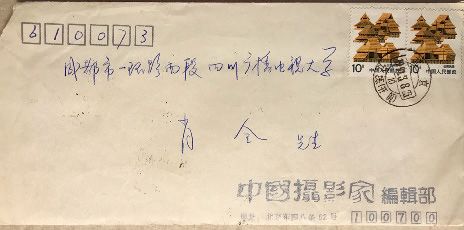 610073
成都市一环路西段四川广播电视大学
肖全 先生
10分 中国人民邮政
10分 中国人民邮政
中國攝影家 編輯部
地址：北京东四八条52号
100700